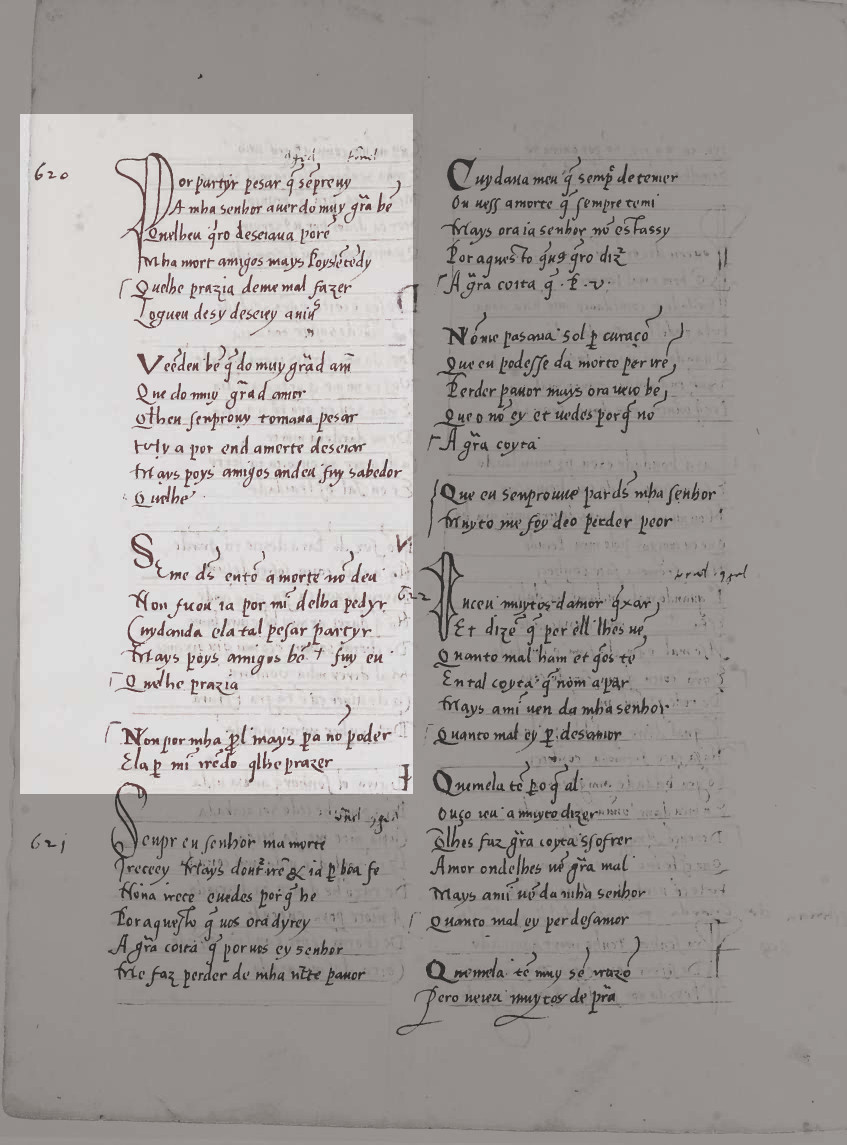 620
Por partyr pesar q̃ sẽpre uy
A mha senhor auer do muy grã bẽ
Quelheu q̃ro deseiaua porẽ
Mha mort amigos mays poys ẽtẽdy
Quelhe prazia deme mal fazer
Logueu desy deseiey
Veẽdeu bẽ q̃ do muy grãd
Que do muy grãd amor
senprouuy tomaua pesar
a por end amorte deseiar
Mays poys amigos andeu fuy sabedor
Quelhe
Seme ds̃ entõ a morte nõ deu
Non ficou ia por mĩ delha pedyr
Cuydanda ela tal pesar partyr
Mays poys amigos bẽ fuy eu
Quelhe prazia
Non por mha prol mays pa nõ poder
Ela p mĩ q̃lhe prazer
621
Senpr eu senhor ma morte
Mays ia p bõa fe
cuedes porq̃ he
Por aquesto q̃ uos ora dyrey
A grã coita q̃ por uos ey senhor
Me faz perder de mha pauor
Cuydaua meu q̃ semp̃ de temer
Ou uess amorte q̃ sempre temi
Mays ora ia senhor nõ est assy
Por aquesto q̃ q̃ro diz̃
A grã coita q̃
Nõ me pasaua sol p curaçõ
Que eu podesse da morte per
Perder pauor mays ora ueio bẽ
Que o nõ ey et uedes porq̃ nõ
A grã coyta
Que eu senprouue par ds̃ mha senhor
Muyto me foy deo perder peor
622
Punceu muytos damor q̃xar
Et dizẽ q̃ per ell lhes uẽ
Quanto mal ham et q̃os tẽ
En tal coyta q̃ nom a par
Mays amĩ uen da mha senhor
Quanto mal ey p desamor
Quemela tẽ po q̃ al
Ouço ueu a muyto dizer
lhes faz grã coyta ssofrer
Amor ondelhes uẽ grã mal
Mays amĩ uẽ da mha senhor
Quanto mal ey per desamor
Quemela tẽ muy sẽ razõ
Pero ueieu muytos de prã